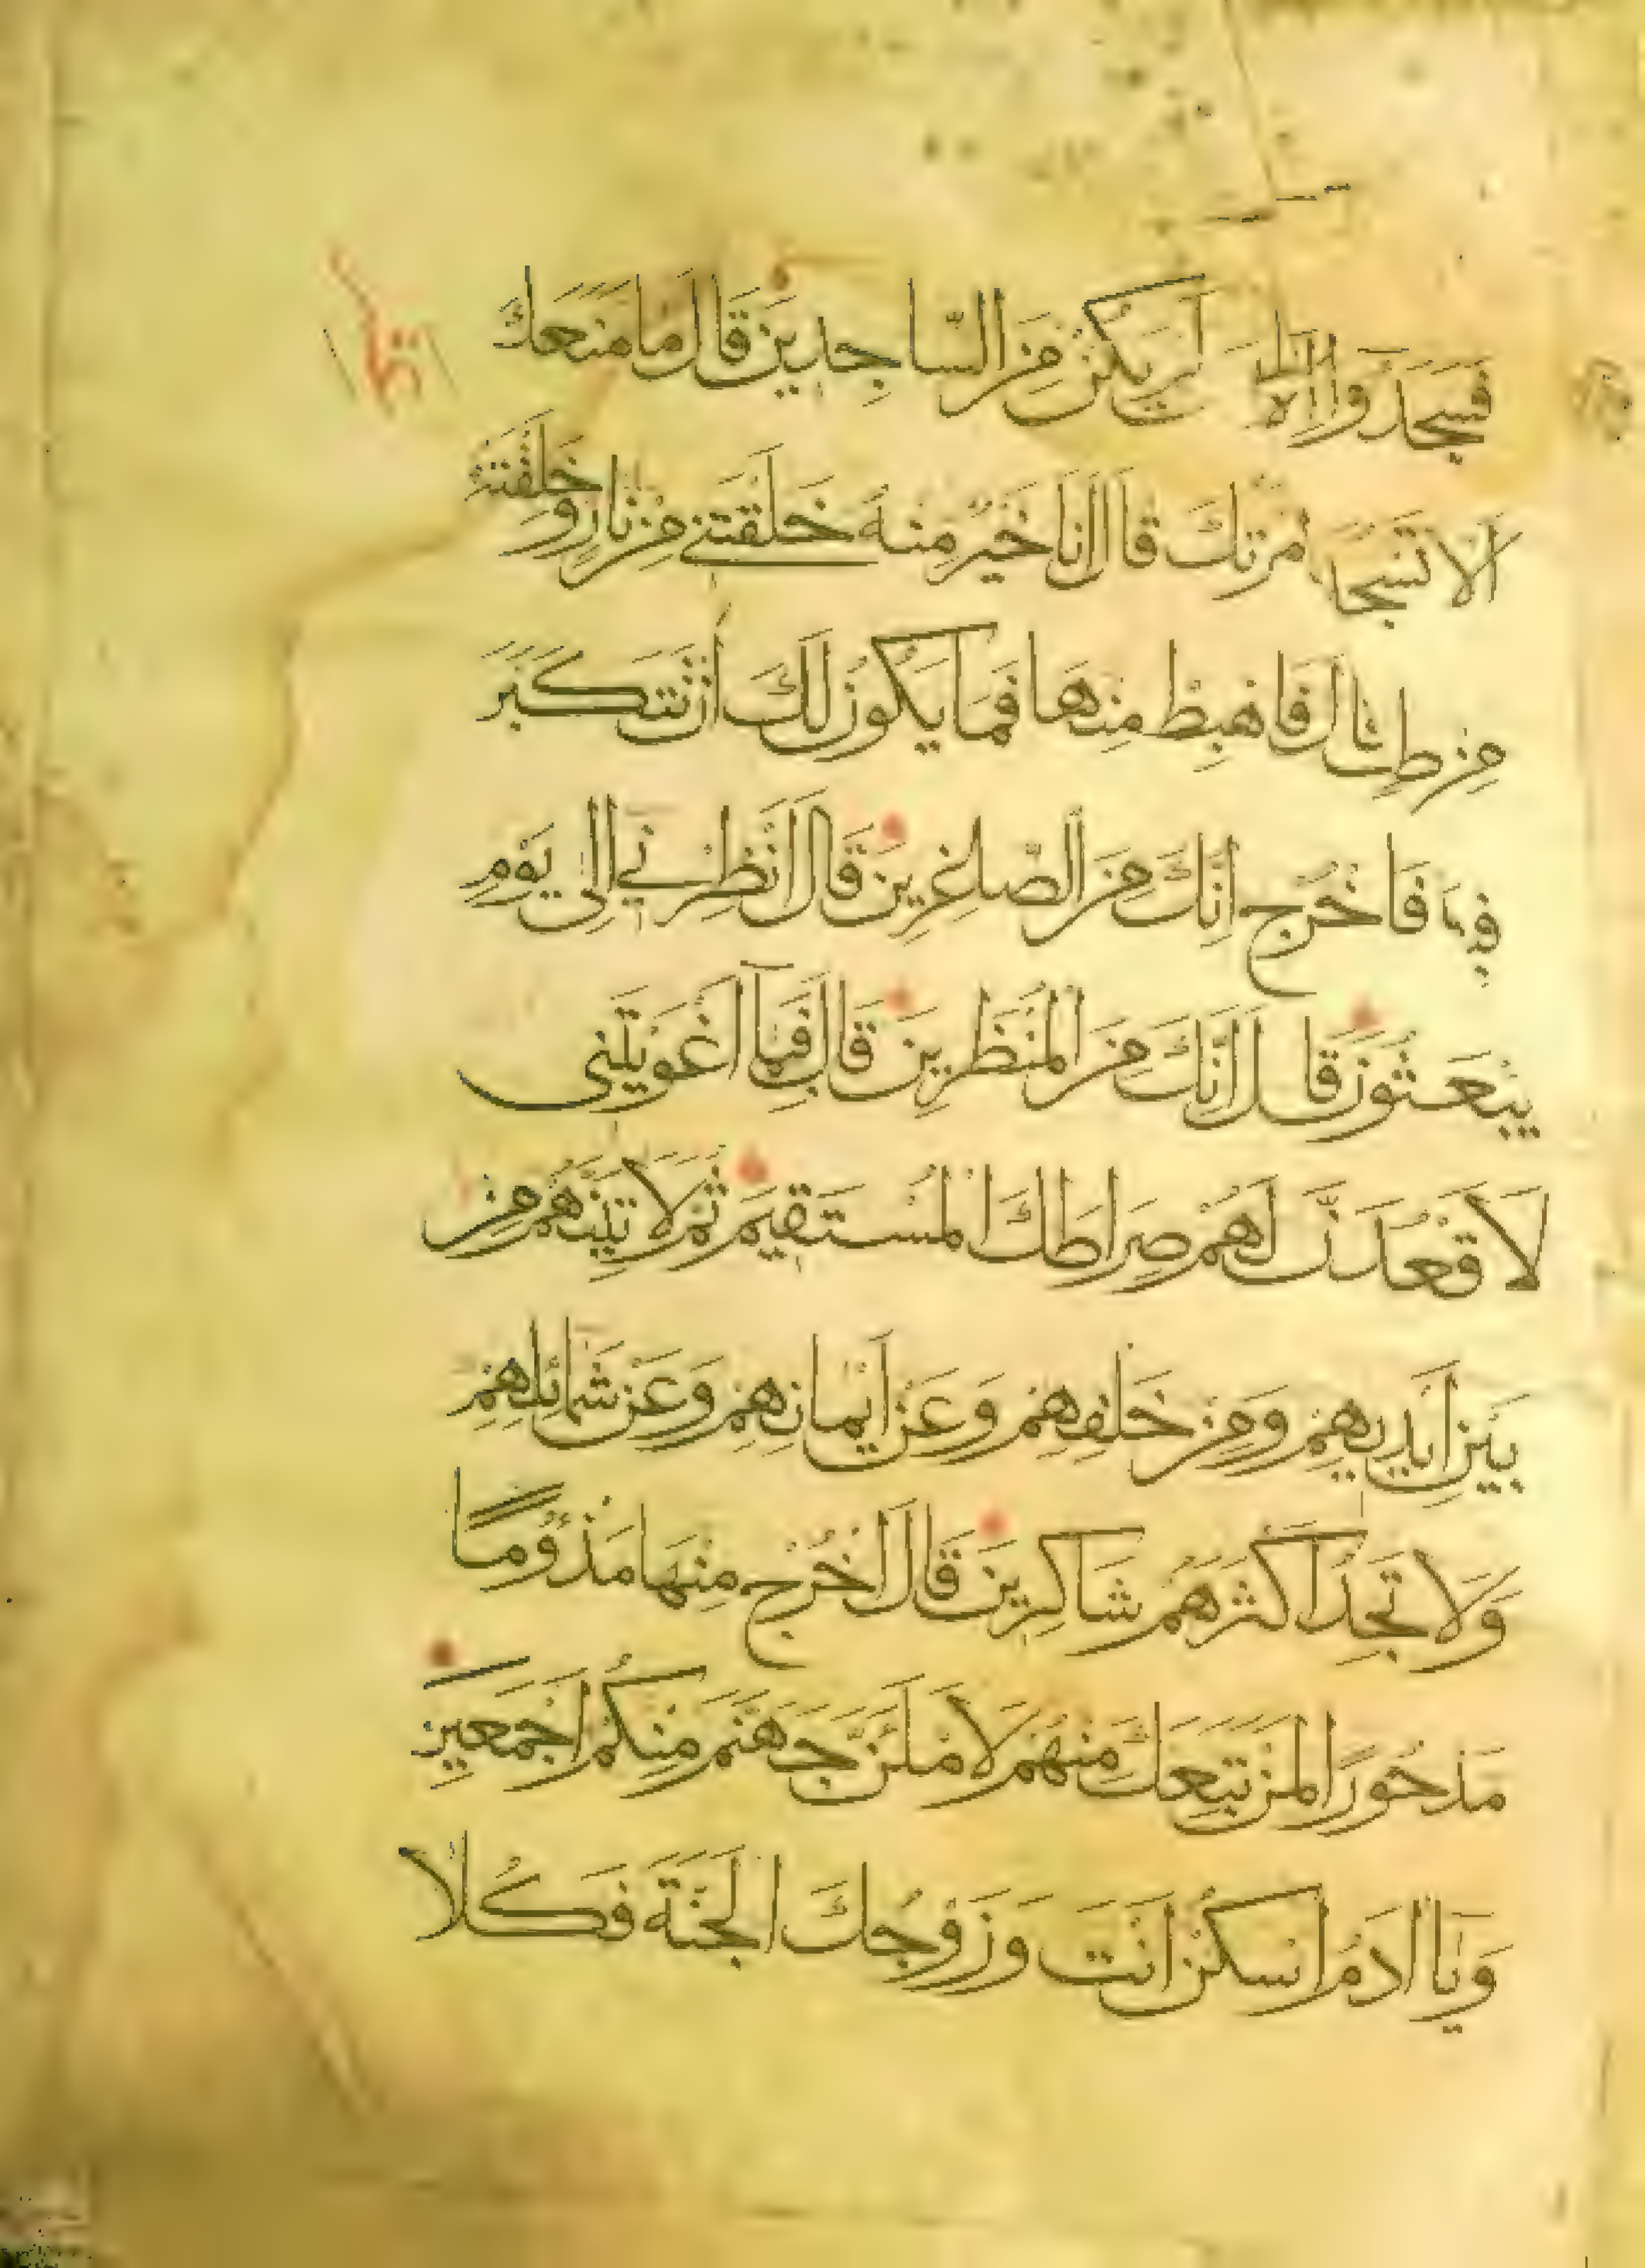 فَسَجَدُوا إلا إبليس لَمْ يَكُنْ مِنَ السَّاجِدِينَ قَالَ مَا مَنَعَكَ
اَلَّا تَسْجُدَ امرتك قَالَ انَا خَيْرٌ مِنْهُ خَلَقْتَنِي مِنْ نَارٍ وَخَلَقْتَهُ
مِنْ طِين قال فَاهْبِطْ مِنْهَا فَمَا يَكُونُ لَكَ أَنْ تَتَكَبَّرَ
فِيهَا فَاخْرُج اِنَّكَ مِنَ الصّٰغِرِينَ قَالَ انْظِرْنِي اِلَى يَوْمِ
يُبْعَثُونَ قَالَ اِنَّكَ مِنَ الْمُنْظَرِينَ قَالَ فَبِمَا اَغْوَيْتَنِى
لَاَقْعُدَنَّ لَهُمْ صِرَاطَكَ الْمُسْتَقِيمَ ثُمَّ لَاتِيَنَّهُمْ مِنْ
بَيْنِ اَيْدِيهِمْ وَمِنْ خَلْفِهِمْ وَعَنْ اَيْمَانِهِمْ وَعَنْ شَمَائِلِهِمْ
وَلَا تَجِدُ اَكْثَرَهُمْ شَاكِرِينَ قَالَ اخْرُجْ مِنْهَا مَذْؤُمًا
مَدْحُورًا لَمَنْ تَبِعَكَ مِنْهُمْ لَاَمْلَئَنَّ جَهَنَّمَ مِنْكُمْ اَجْمَعِينَ
وَيَا ادَمُ اسْكُنْ اَنْتَ وَزَوْجُكَ الْجَنَّةَ فَكُلَا